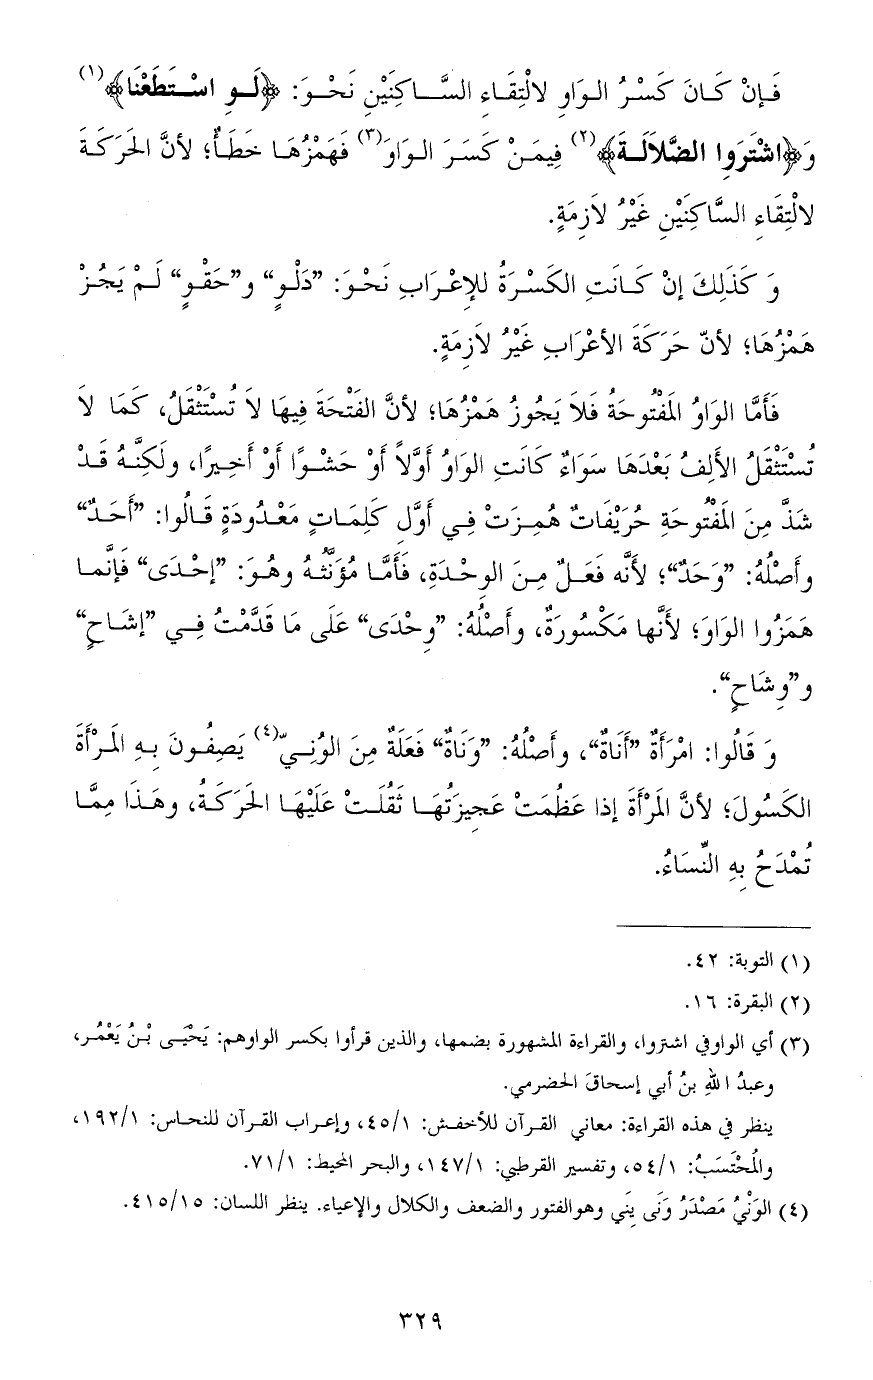 فَإنْ كَانَ كَسْرُ الوَاوِ لالْتِقَاءِ السَّاكِنَيْنِ نَحْوَ: ﴿لَوِ اسْتَطَعْنَا﴾(١)
وَ﴿اشْتَرَوِا الضَّلاَلَةَ﴾(٢) فِيمَنْ كَسَرَ الوَاوَ(٣) فَهَمْزُهَا خَطَأٌ؛ لأنَّ الحَرَكَةَ
لالْتِقَاءِ السَّاكِنَيْنِ غَيْرُ لاَزِمَةٍ.
وَ كَذَلِكَ إنْ كَانَتِ الكَسْرَةُ للإعْرَابِ نَحْوَ: ”دَلْوٍ“ و”حَقْوٍ“ لَمْ يَجُزْ
هَمْزُهَا؛ لأنّ حَرَكَةَ الأعْرَابِ غَيْرُ لاَزِمَةٍ.
فَأمَّا الوَاوُ المَفْتُوحَةُ فَلاَ يَجُوزُ هَمْزُهَا؛ لأنَّ الفَتْحَةَ فِيهَا لاَ تُسْتَثْقَلُ، كَمَا لاَ
تُسْتَثْقَلُ الألِفُ بَعْدَهَا سَوَاءٌ كَانَتِ الوَاوُ أوَّلاً أوْ حَشْوًا أوْ أخِيرًا، ولَكِنَّهُ قَدْ
شَذَّ مِنَ المَفْتُوحَةِ حُرَيْفَاتٌ هُمِزَتْ فِي أوَّلِ كَلِمَاتٍ مَعْدُودَةٍ قَالُوا: ”أحَدٌ“
وأصْلُهُ: ”وَحَدٌ“؛ لأنَّه فَعَلٌ مِنَ الوِحْدَةِ، فَأمَّا مُؤَنَّثُهُ وهُوَ: ”إحْدَى“ فَإنَّما
هَمَزُوا الوَاوَ؛ لأنَّها مَكْسُورَةٌ، وأصْلُهُ: ”وِحْدَى“ عَلَى مَا قَدَّمْتُ فِي ”إشَاحٍ“
و”وِشَاحٍ“.
وَ قَالُوا: امْرَأةٌ ”أنَاةٌ“، وأصْلُهُ: ”وَنَاةٌ“ فَعَلَةٌ مِنَ الوُنِيّ(٤) يَصِفُونَ بِهِ المَرْأةَ
الكَسُولَ؛ لأنَّ المَرْأةَ إذا عَظُمَتْ عَجِيزَتُهَا ثَقُلَتْ عَلَيْهَا الحَرَكَةُ، وهَذَا مِمَّا
تُمْدَحُ بِهِ النِّسَاءُ.
(١) التوبة: ٤٢.
(٢) البقرة: ١٦.
(٣) أي الواوفي اشتروا، والقراءة المشهورة بضمها، والذين قرأوا بكسر الواوهم: يَحْيَى بْنُ يَعْمُر،
وعبدُ اللهِ بنُ أبي إسحاقَ الحضرمي.
ينظر في هذه القراءة: معاني القرآن للأخفش: ٤٥/١، وإعراب القرآن للنحاس: ١٩٢/١،
والمُحْتَسَبُ: ٥٤/١، وتفسير القرطبي: ١٤٧/١، والبحر المحيط: ٧١/١.
(٤) الوَنْيُ مَصْدَرُ وَنَى يَنِي وهوالفتور والضعف والكلال والإعياء. ينظر اللسان: ٤١٥/١٥.
٣٢٩